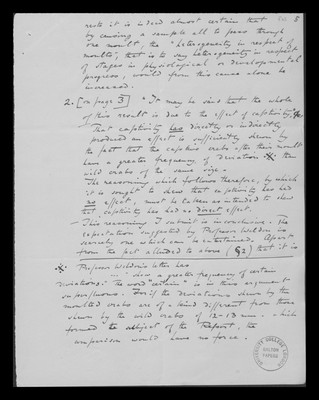 rests it is indeed almost certain that
by causing a sample all to pass through
one moult, the "heterogeneity in respect of
moults", that is to say heterogeneity in respect
of stages in physiological or developmental
progress, would from this cause alone be
increased.
8
2. [on page 3] "It may be said that the whole
of this result is due to the effect of captivity",
that captivity has directly or indirectly
produced an effect is sufficiently shewn by
the fact that the captive crabs after their moult
have a greater frequency of deviation than
wild crabs of the same size.
The reasoning which follows therefore, by which
it is sought to shew that captivity has had
no effect, must be taken as intended to shew
that captivity has had no direct effect.
This reasoning I submit is inconclusive. The
expectation suggested by Professor Weldon is
scarcely one which can be entertained. Apart
from the fact alluded to above that it is
Professor Weldon's letter has
"... shew a greater frequency of certain
deviations": the word "certain" is in this argument
superfluous. For if the deviations shewn by the
moulted crabs are of a kind different from those
shewn by the wild crabs of 12-13 mm. which
formed the subject of the Report, the
comparison would have no force.
UNIVERSITY COLLEGE LONDON
GALTON
PAPERS